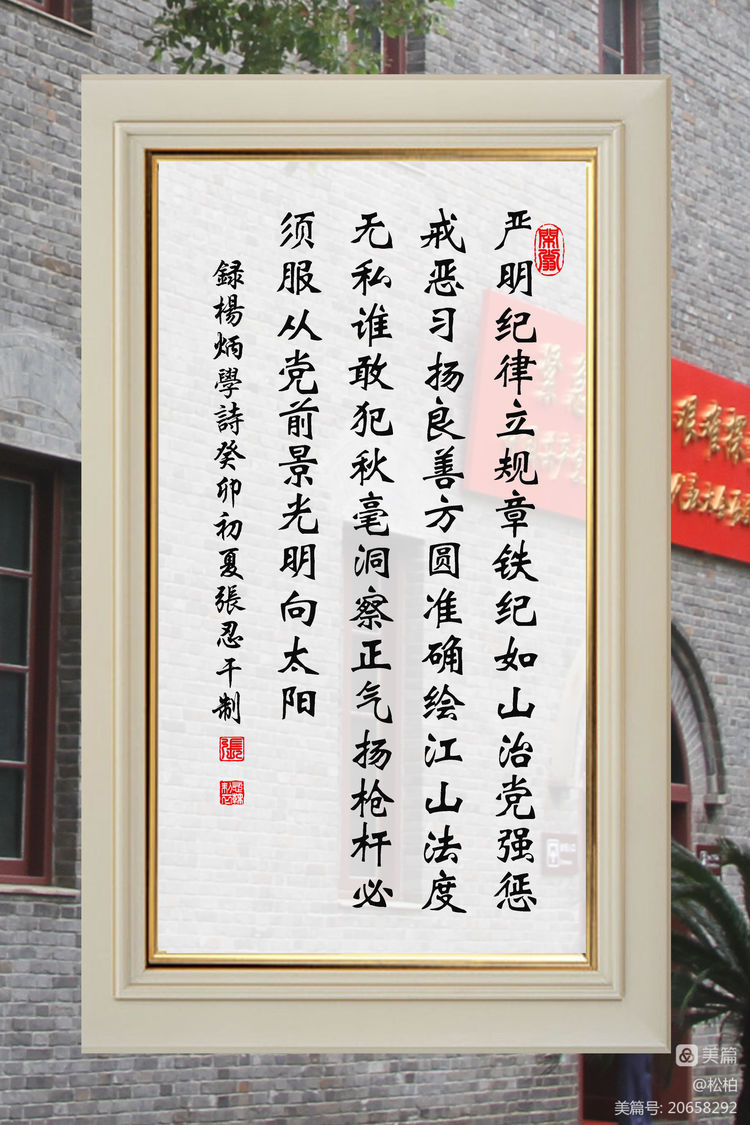 严明纪律立规章铁纪如山治党强惩
戒恶习扬良善方圆准确绘江山法度
无私谁敢犯秋毫洞察正气扬枪杆必
须服从党前景光明向太阳
録楊炳學詩癸卯初夏張忍干制
張
美篇
@松柏
美篇号: 20658292